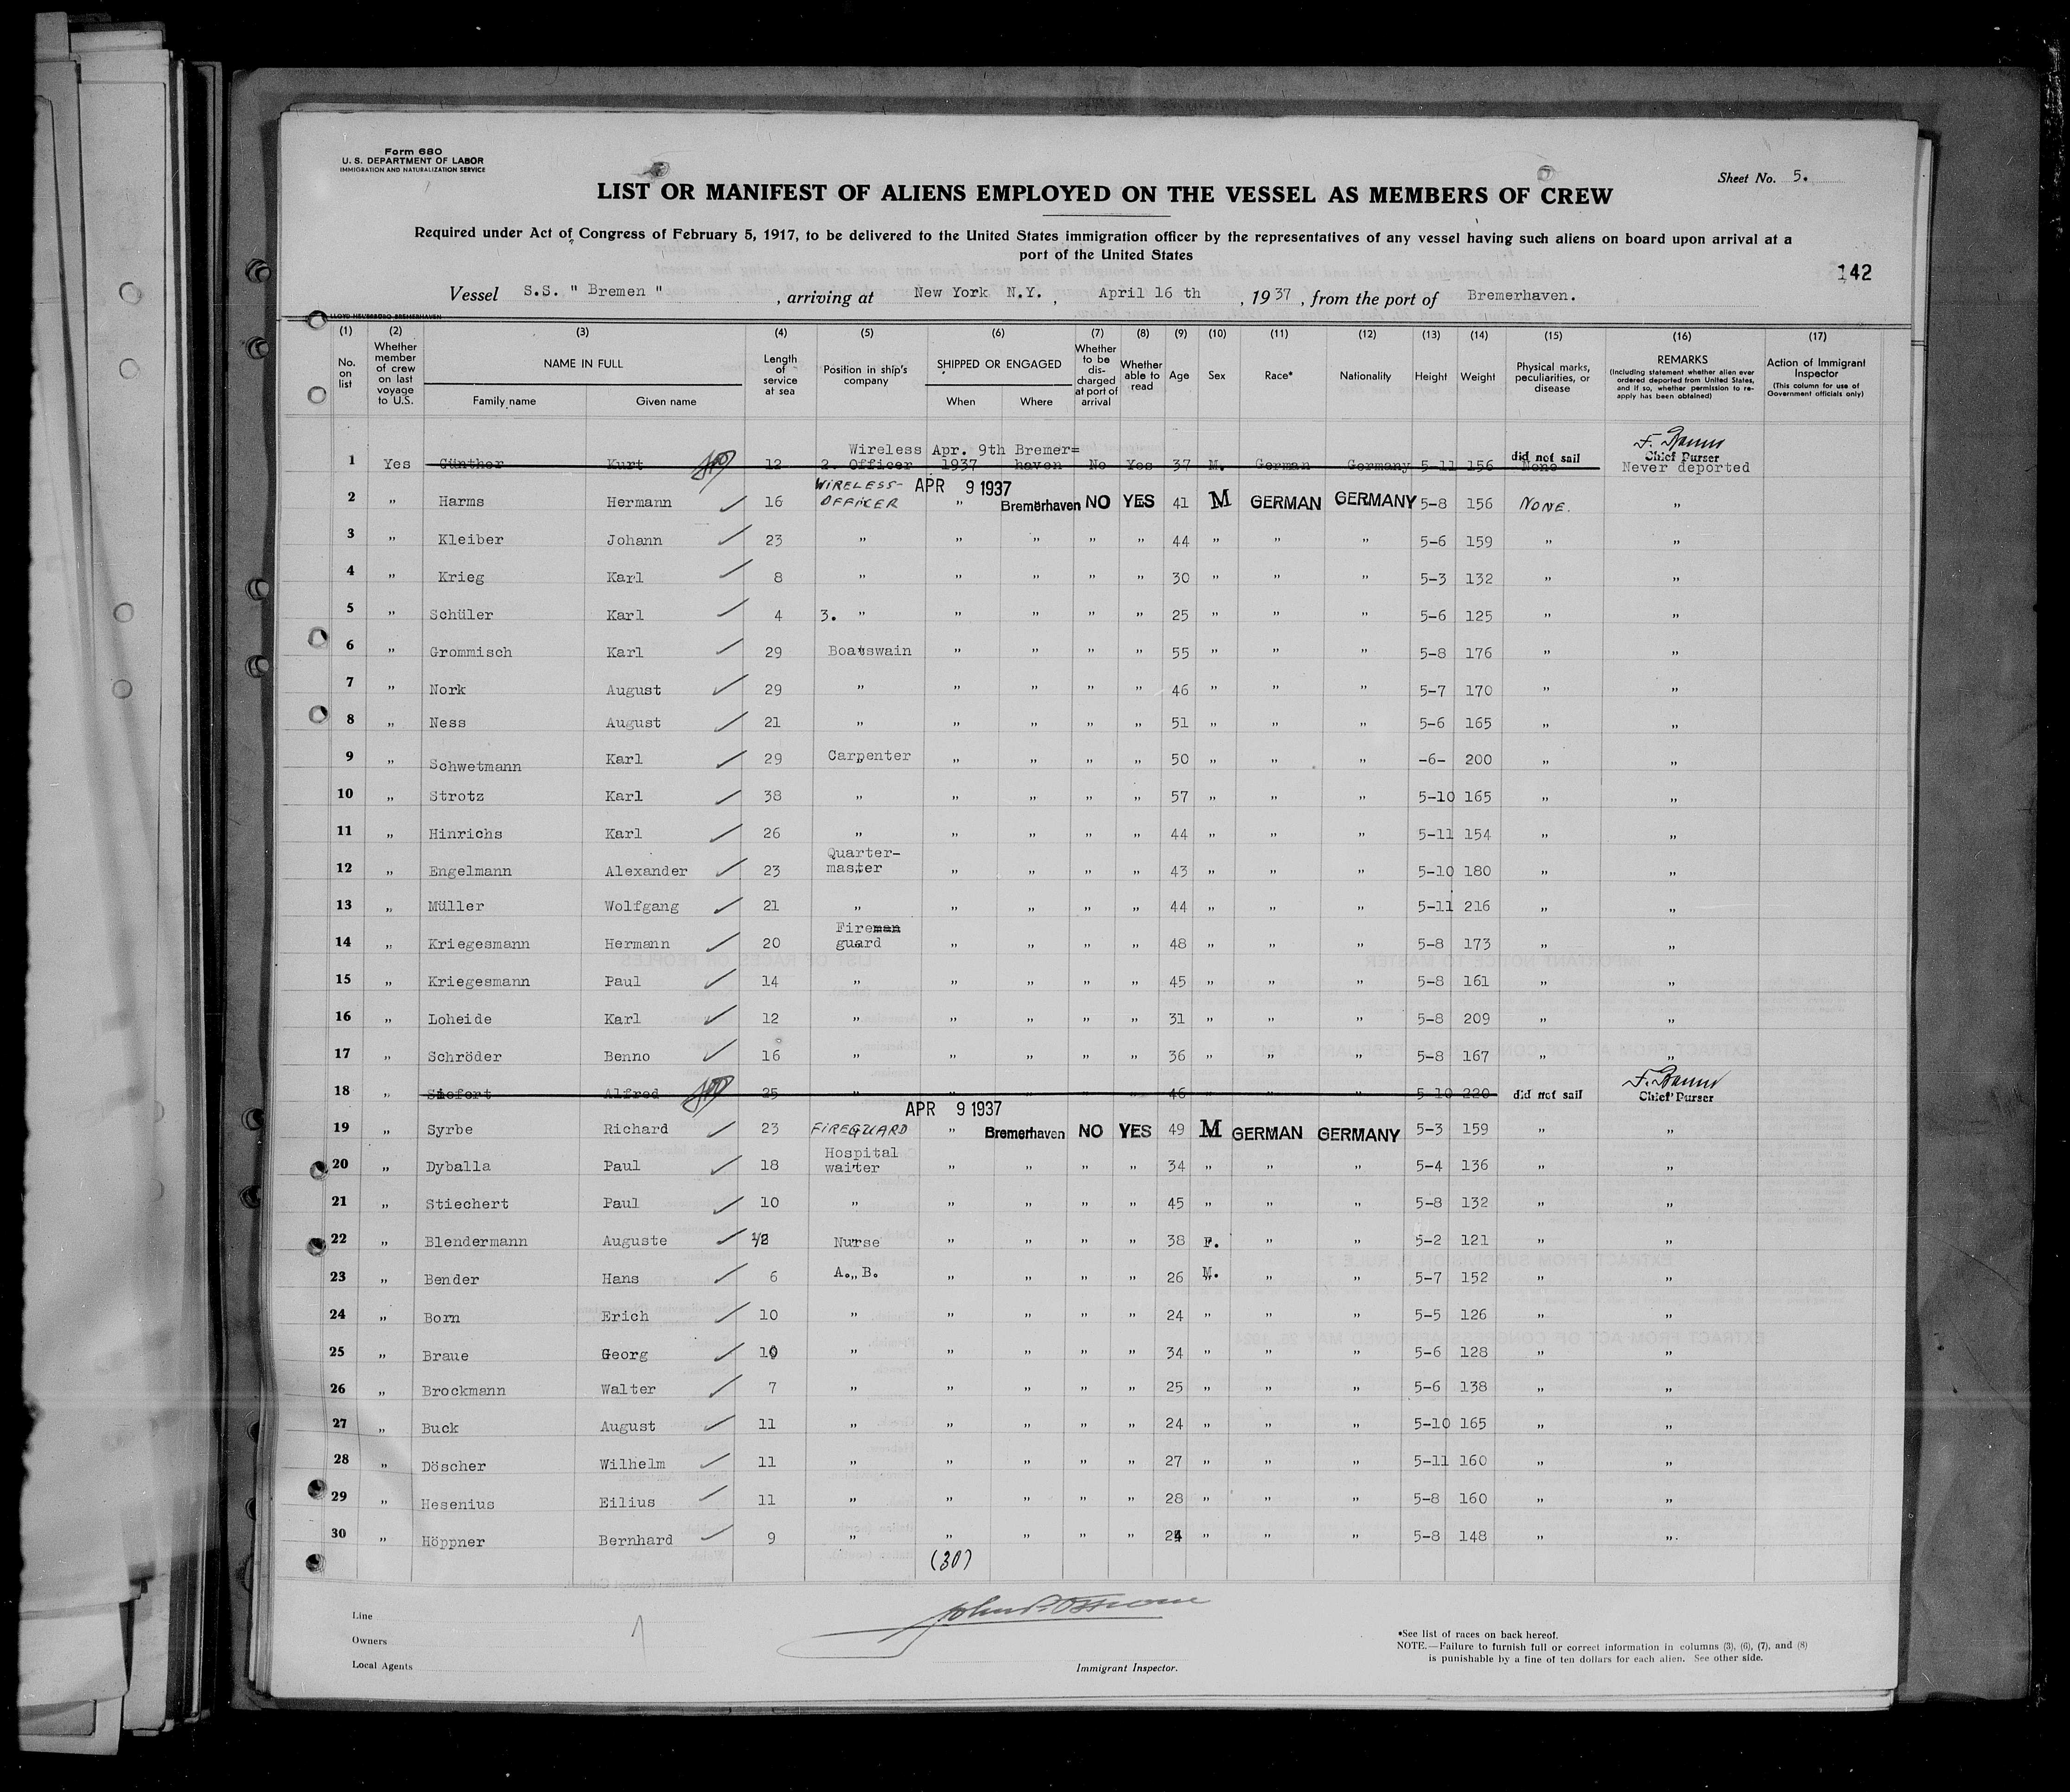 Form 680
U. S. DEPARTMENT OF LABOR
IMMIGRATION AND NATURALIZATION SERVICE
Sheet No. 5.
LIST OR MANIFEST OF ALIENS EMPLOYED ON THE VESSEL AS MEMBERS OF CREW
Required under Act of Congress of February 5, 1917, to be delivered to the United States immigration officer by the representatives of any vessel having such aliens on board upon arrival at a
port of the United States
142
Vessel S.S. " Bremen " , arriving at New York N.Y. , April 16 th , 1937 , from the port of Bremerhaven.
(1) (2) (3) (4) (5) (6) (7) (8) (9) (10) (11) (12) (13) (14) (15) (16) (17)
No. on list
Whether member of crew on last voyage to U.S.
NAME IN FULL
Family name Given name
Length of service at sea
Position in ship's company
SHIPPED OR ENGAGED
When Where
Whether to be discharged at port of arrival
Whether able to read
Age Sex Race* Nationality Height Weight
Physical marks, peculiarities, or disease
REMARKS
(Including statement whether alien ever ordered deported from United States, and if so, whether permission to reapply has been obtained)
Action of Immigrant Inspector
(This column for use of Government officials only)
Wireless Apr. 9th Bremer= did not sail Chief Purser
1 Yes Günther Kurt 12 2. Officer 1937 haven No Yes 37 M. German Germany 5-11 156 None Never deported
WIRELESS- APR 9 1937
2 " Harms Hermann 16 OFFICER " Bremerhaven NO YES 41 M GERMAN GERMANY 5-8 156 NONE. "
3 " Kleiber Johann 23 " " " " " 44 " " " 5-6 159 " "
4 " Krieg Karl 8 " " " " " 30 " " " 5-3 132 " "
5 " Schüler Karl 4 3. " " " " " 25 " " " 5-6 125 " "
6 " Grommisch Karl 29 Boatswain " " " " 55 " " " 5-8 176 " "
7 " Nork August 29 " " " " " 46 " " " 5-7 170 " "
8 " Ness August 21 " " " " " 51 " " " 5-6 165 " "
9 " Schwetmann Karl 29 Carpenter " " " " 50 " " " -6- 200 " "
10 " Strotz Karl 38 " " " " " 57 " " " 5-10 165 " "
11 " Hinrichs Karl 26 " " " " " 44 " " " 5-11 154 " "
Quarter-
12 " Engelmann Alexander 23 master " " " " 43 " " " 5-10 180 " "
13 " Müller Wolfgang 21 " " " " " 44 " " " 5-11 216 " "
Fireman
14 " Kriegesmann Hermann 20 guard " " " " 48 " " " 5-8 173 " "
15 " Kriegesmann Paul 14 " " " " " 45 " " " 5-8 161 " "
16 " Loheide Karl 12 " " " " " 31 " " " 5-8 209 " "
17 " Schröder Benno 16 " " " " " 36 " " " 5-8 167 " "
18 " Siefert Alfred 25 " " " " " 46 " " " 5-10 220 did not sail Chief Purser
APR 9 1937
19 " Syrbe Richard 23 FIREGUARD " Bremerhaven NO YES 49 M GERMAN GERMANY 5-3 159 " "
Hospital
20 " Dyballa Paul 18 waiter " " " " 34 " " " 5-4 136 " "
21 " Stiechert Paul 10 " " " " " 45 " " " 5-8 132 " "
22 " Blendermann Auguste 1/2 Nurse " " " " 38 F. " " 5-2 121 " "
23 " Bender Hans 6 A. B. " " " " 26 M. " " 5-7 152 " "
24 " Born Erich 10 " " " " " 24 " " " 5-5 126 " "
25 " Braue Georg 10 " " " " " 34 " " " 5-6 128 " "
26 " Brockmann Walter 7 " " " " " 25 " " " 5-6 138 " "
27 " Buck August 11 " " " " " 24 " " " 5-10 165 " "
28 " Döscher Wilhelm 11 " " " " " 27 " " " 5-11 160 " "
29 " Hesenius Eilius 11 " " " " " 28 " " " 5-8 160 " "
30 " Höppner Bernhard 9 " " " " " 24 " " " 5-8 148 " "
(30)
Line
Owners
Local Agents
Immigrant Inspector.
*See list of races on back hereof.
NOTE.—Failure to furnish full or correct information in columns (3), (6), (7), and (8)
is punishable by a fine of ten dollars for each alien. See other side.